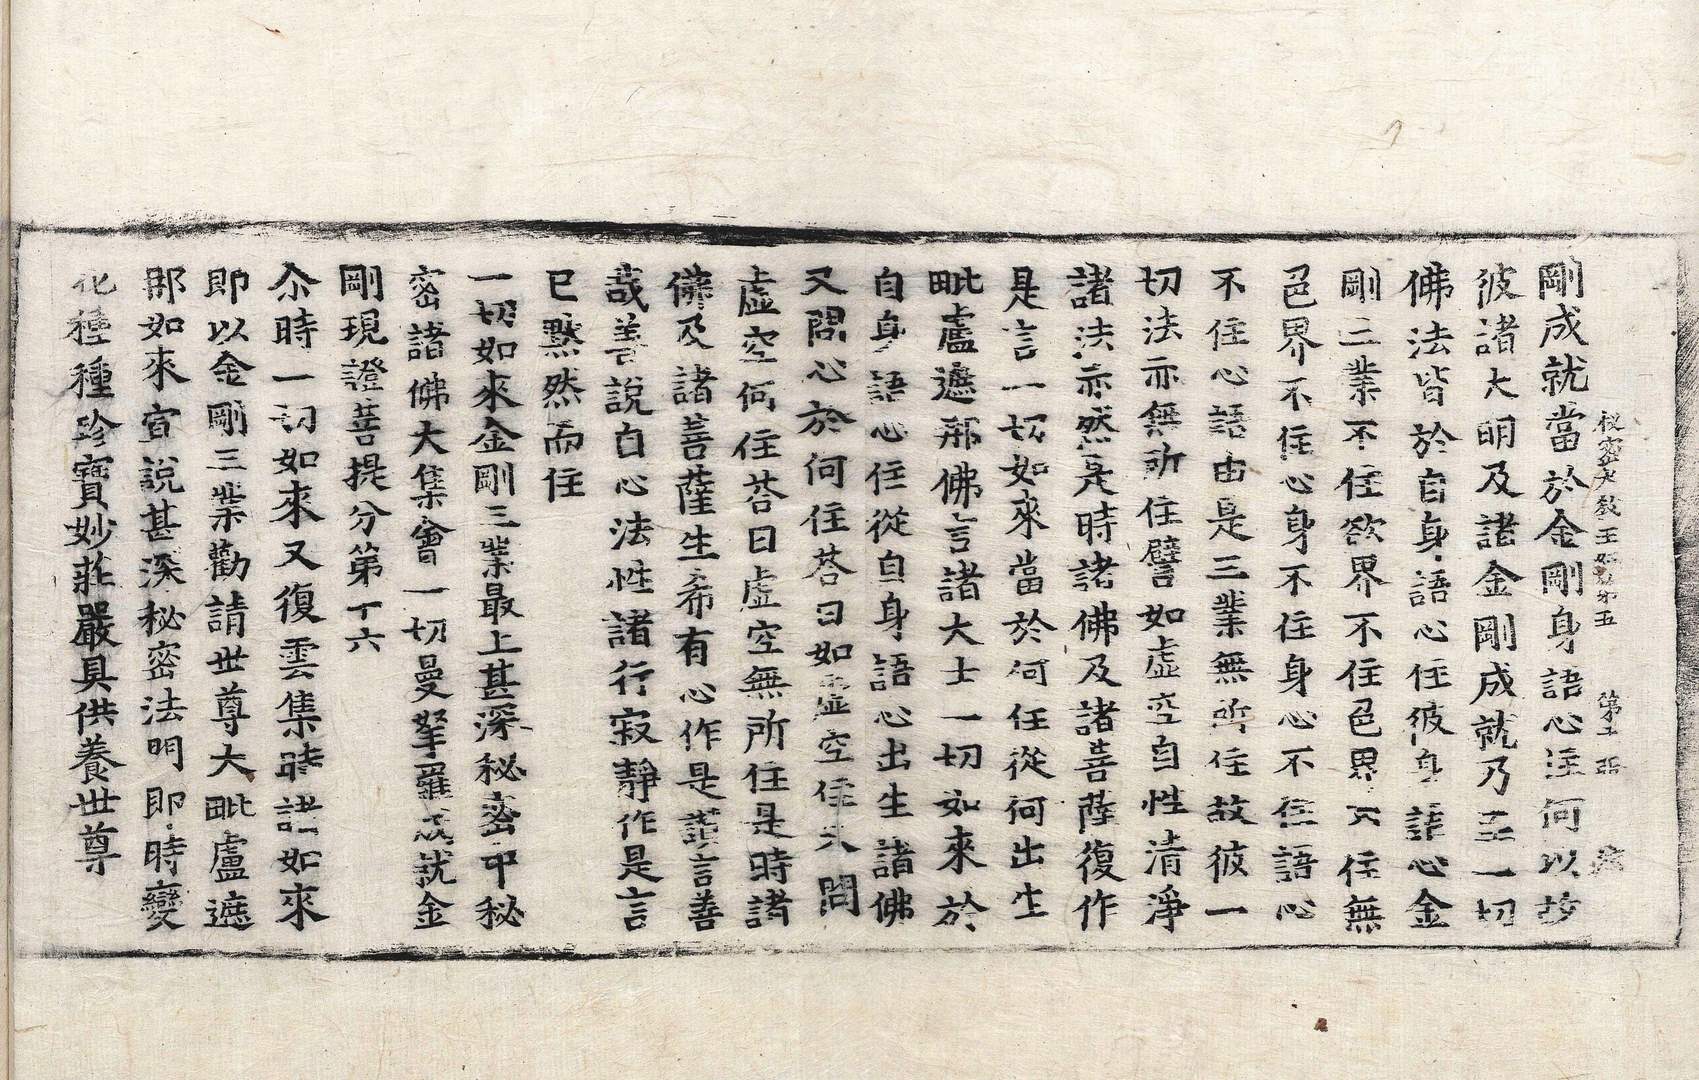 秘密大教王經第五 第十張 癈
剛成就當於金剛身語心住何以故
彼諸大明及諸金剛成就乃至一切
佛法皆於自身語心住彼身語心金
剛三業不住欲界不住色界不住無
色界不住心身不住身心不住語心
不住心語由是三業無所住故彼一
切法亦無所住譬如虛空自性清淨
諸法亦然是時諸佛及諸菩薩復作
是言一切如來當於何住從何出生
毗盧遮那佛言諸大士一切如來於
自身語心住從自身語心出生諸佛
又問心於何住荅曰如虛空住又問
虛空何住荅曰虛空無所住是時諸
佛及諸菩薩生希有心作是讚言善
哉善說自心法性諸行寂靜作是言
已默然而住
一切如來金剛三業最上甚深秘密中秘
密諸佛大集會一切曼拏羅成就金
剛現證菩提分第十六
尒時一切如來又復雲集時諸如來
即以金剛三業勸請世尊大毗盧遮
那如來宣說甚深秘密法門即時變
化種種珍寶妙莊嚴具供養世尊